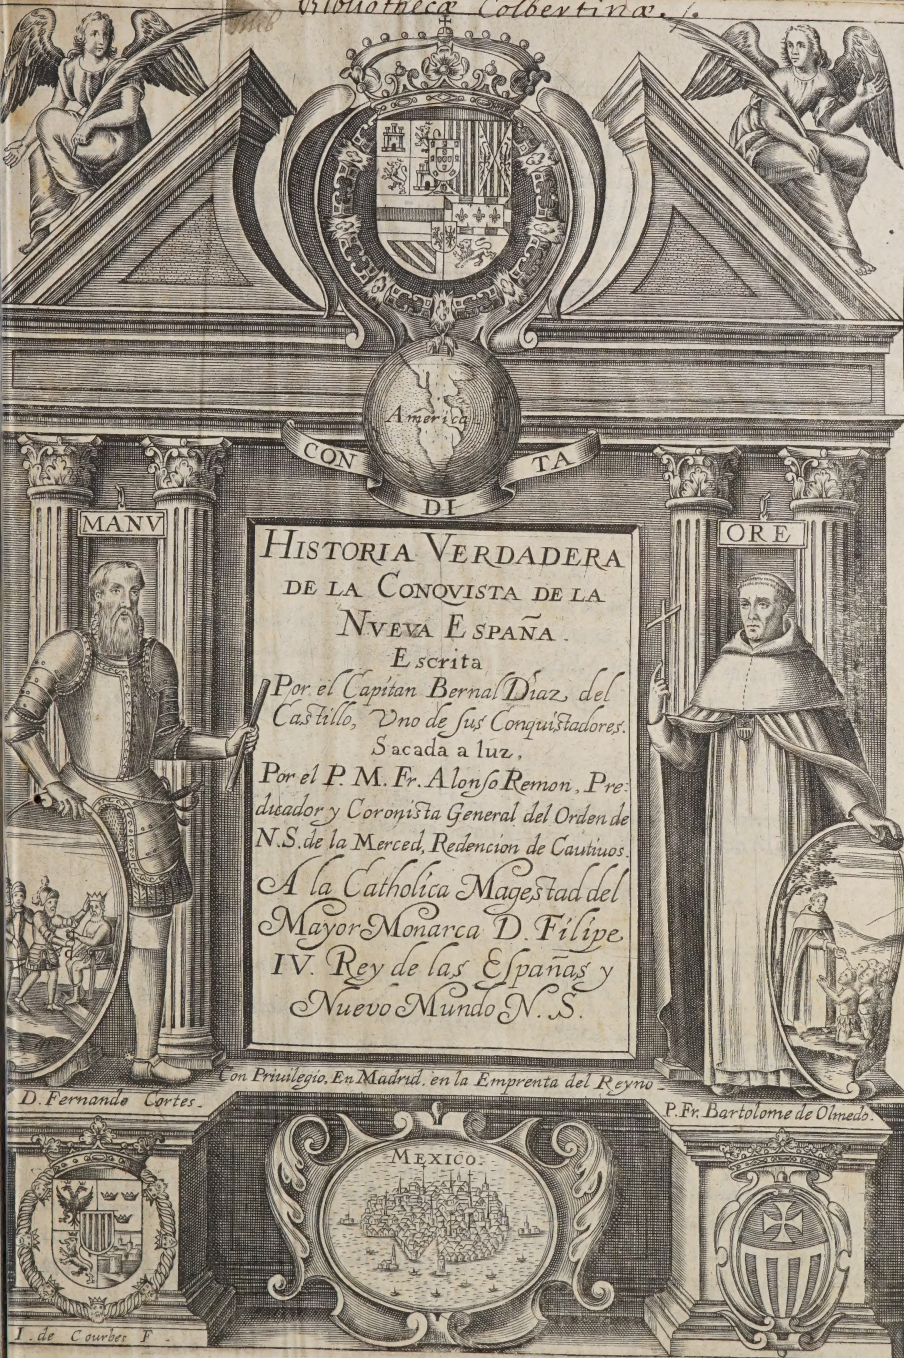 Bibliothecæ Colbertinæ.
America
CON
DI
TA
MANV
ORE
HISTORIA VERDADERA
DE LA CONQVISTA DE LA
NVEVA ESPAÑA.
Escrita
Por el Capitan Bernal Diaz, del
Castillo, Vno de sus Conquistadores.
Sacada a luz,
Por el P. M. Fr. Alonso Remon, Pre-
dicador, y Coronista General del Orden de
N. S. de la Merced, Redencion de Cautiuos.
A la Catholica Magestad del
Mayor Monarca D. Filipe
IV. Rey de las Españas y
Nuevo Mundo N. S.
Con Priuilegio, En Madrid, en la Emprenta del Reyno
D. Fernando Cortes.
P. Fr. Bartolome de Olmedo.
MEXICO.
I. de Courbes F.